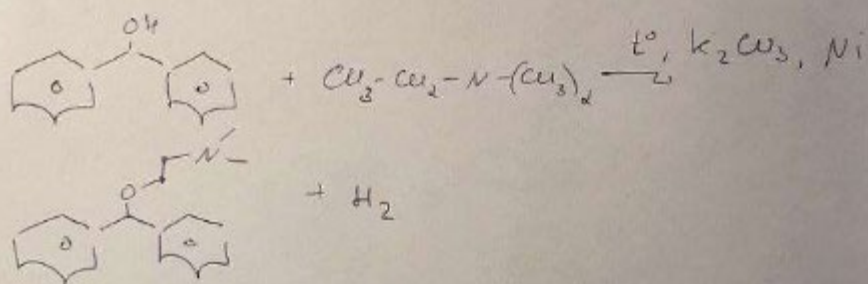 OH
+ CH₃-CH₂-N-(CH₃)₂ t°, K₂CO₃, Ni
N
O
+ H₂